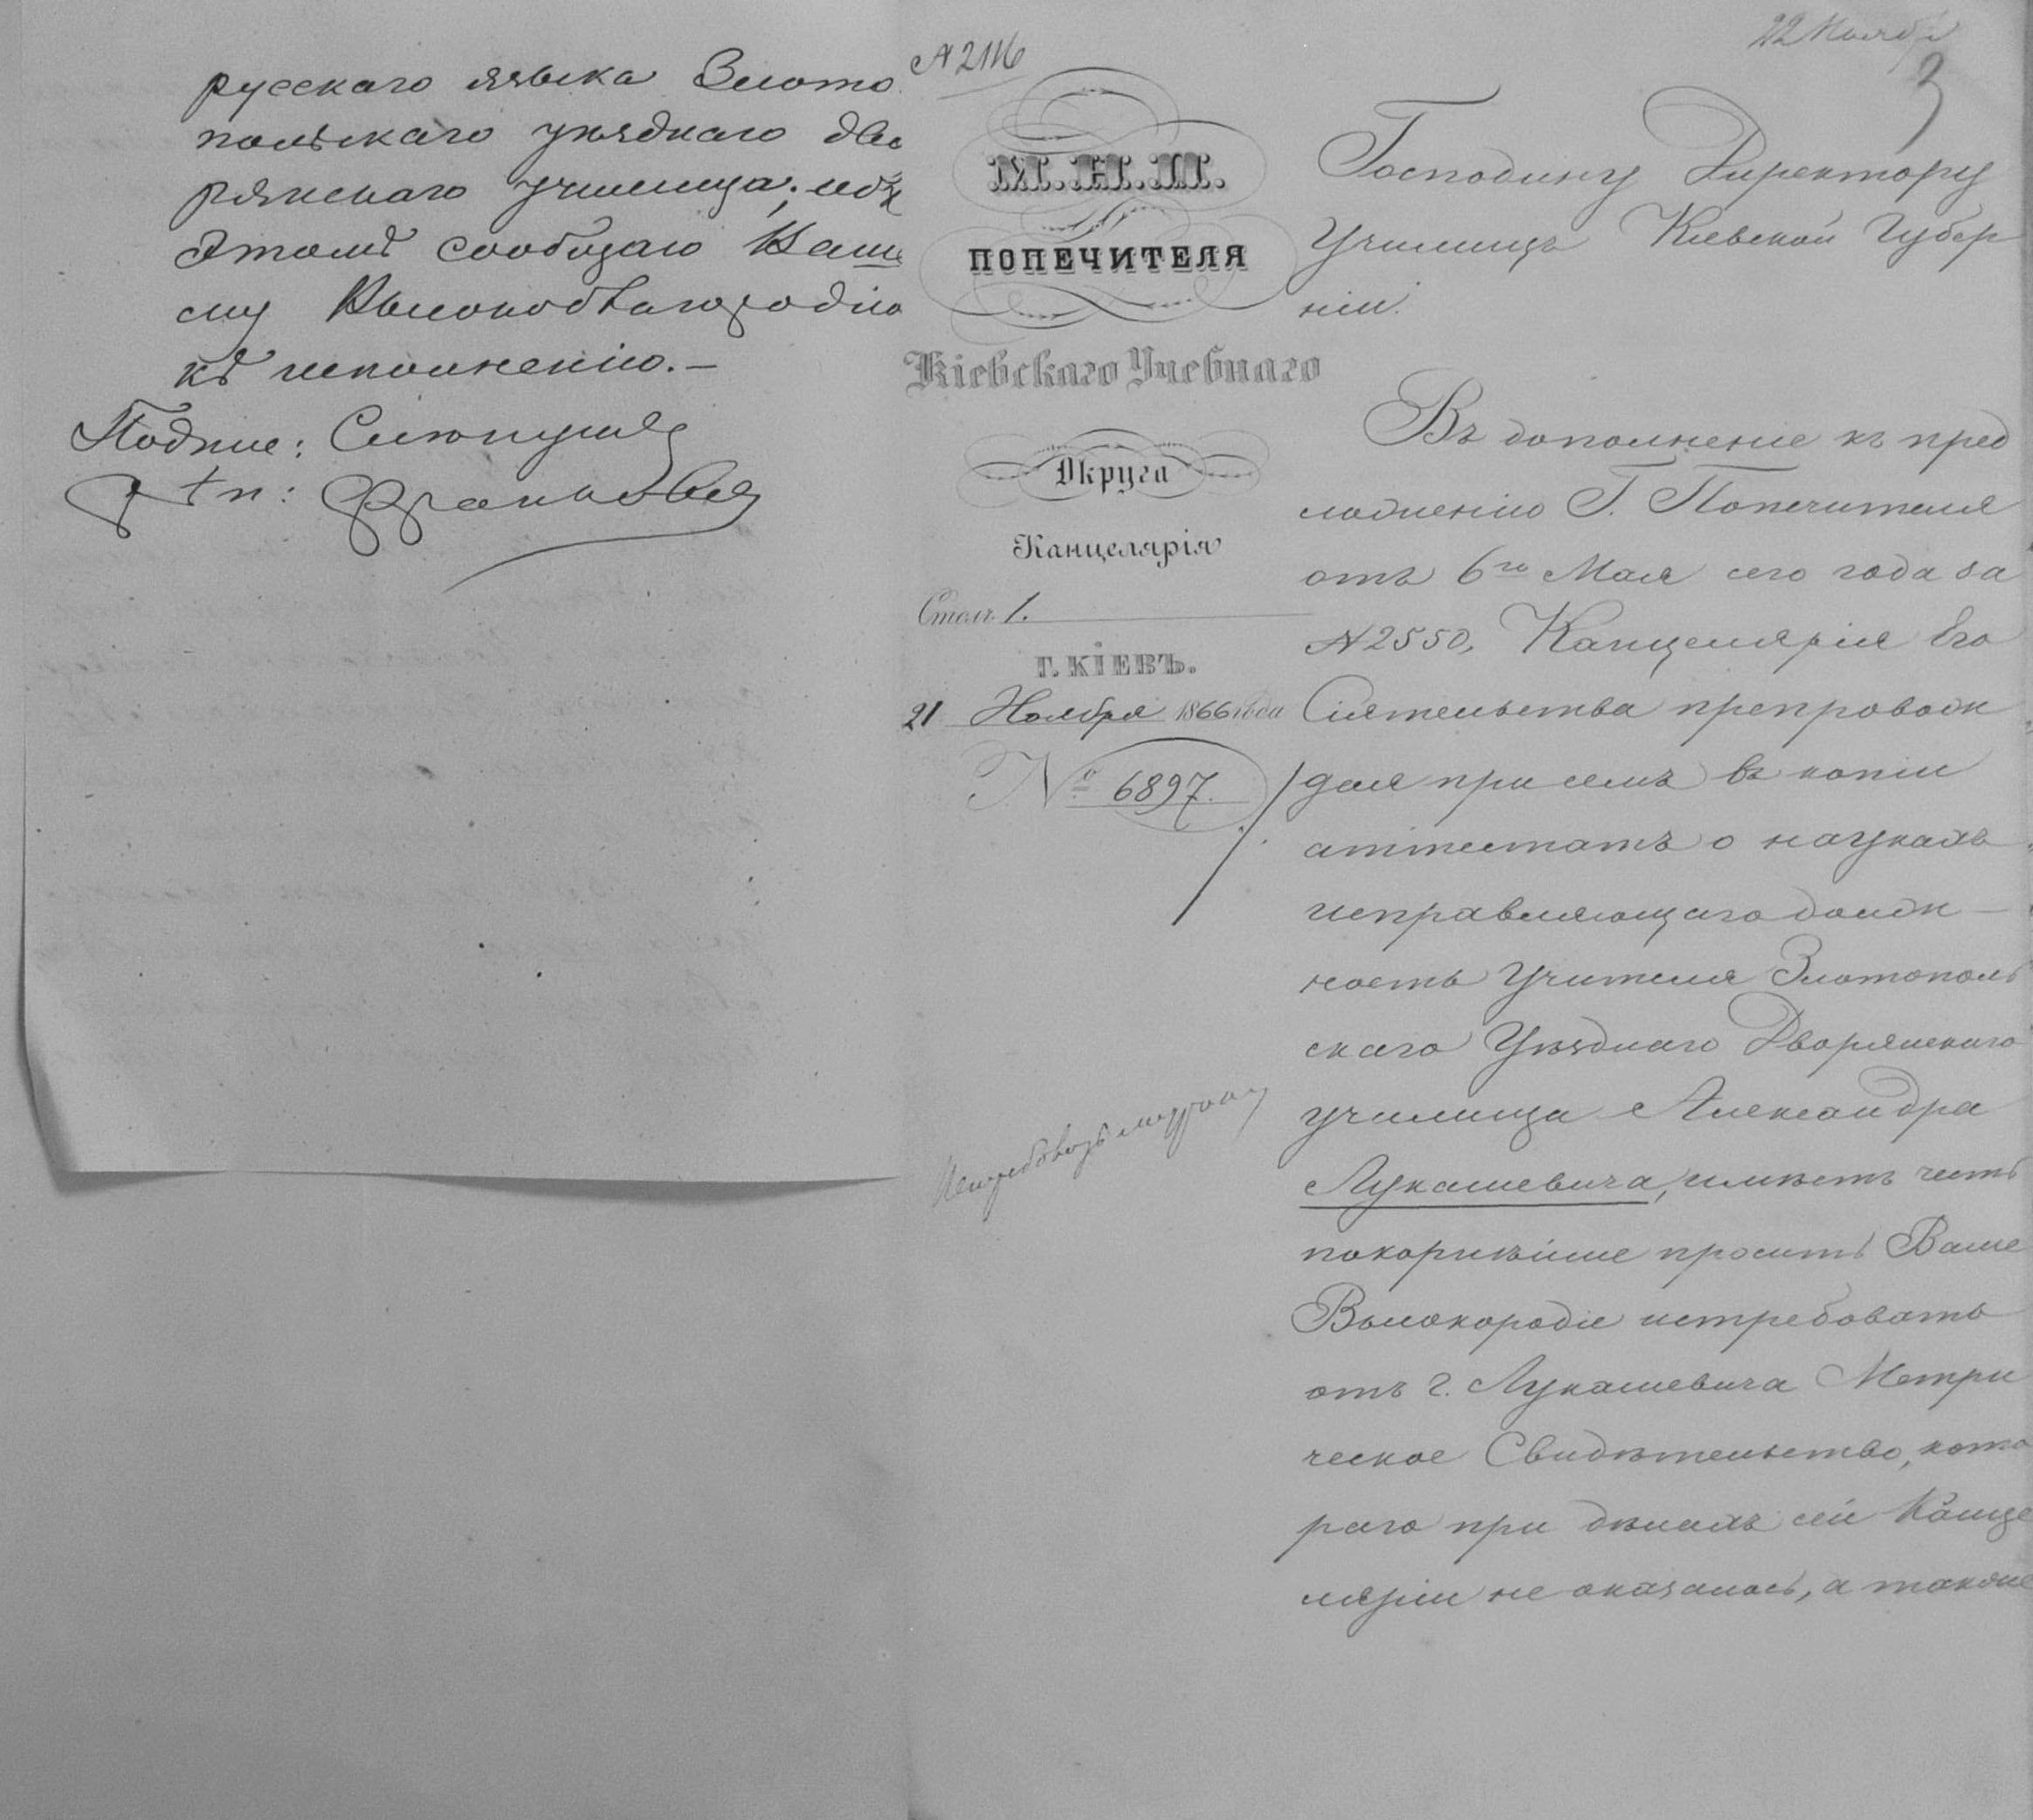 русскаго языка Злото
польскаго уѣзднаго дво
рянскаго училища; объ
этомъ сообщаю Ваше
му Высокоблагородію
къ исполненію.—
Подпис:
№ 2116
М.Н.П.
ПОПЕЧИТЕЛЯ
Кіевскаго Учебнаго
Округа
Канцелярія
Столъ 1.
Г. КІЕВЪ.
21 Ноября 1866 года
№ 6897.
22 Ноября
3
Господину Директору
Училищъ Кіевской Губер
ніи.
Въ дополненіе къ пред
ложенію Г. Попечителя
отъ 6го Мая сего года за
№ 2550, Канцелярія Его
Сіятельства препровож
дая при семъ въ копіи
аттестатъ о наукахъ
исправляющаго долж—
ность Учителя Златополь
скаго Уѣзднаго Дворянскаго
училища Александра
Лукашевича, имѣетъ честь
покорнѣйше просить Ваше
Высокородіе истребовать
отъ г. Лукашевича Метри
ческое Свидѣтельство, кото
раго при дѣлахъ сей Канце
ляріи не оказалось, а также